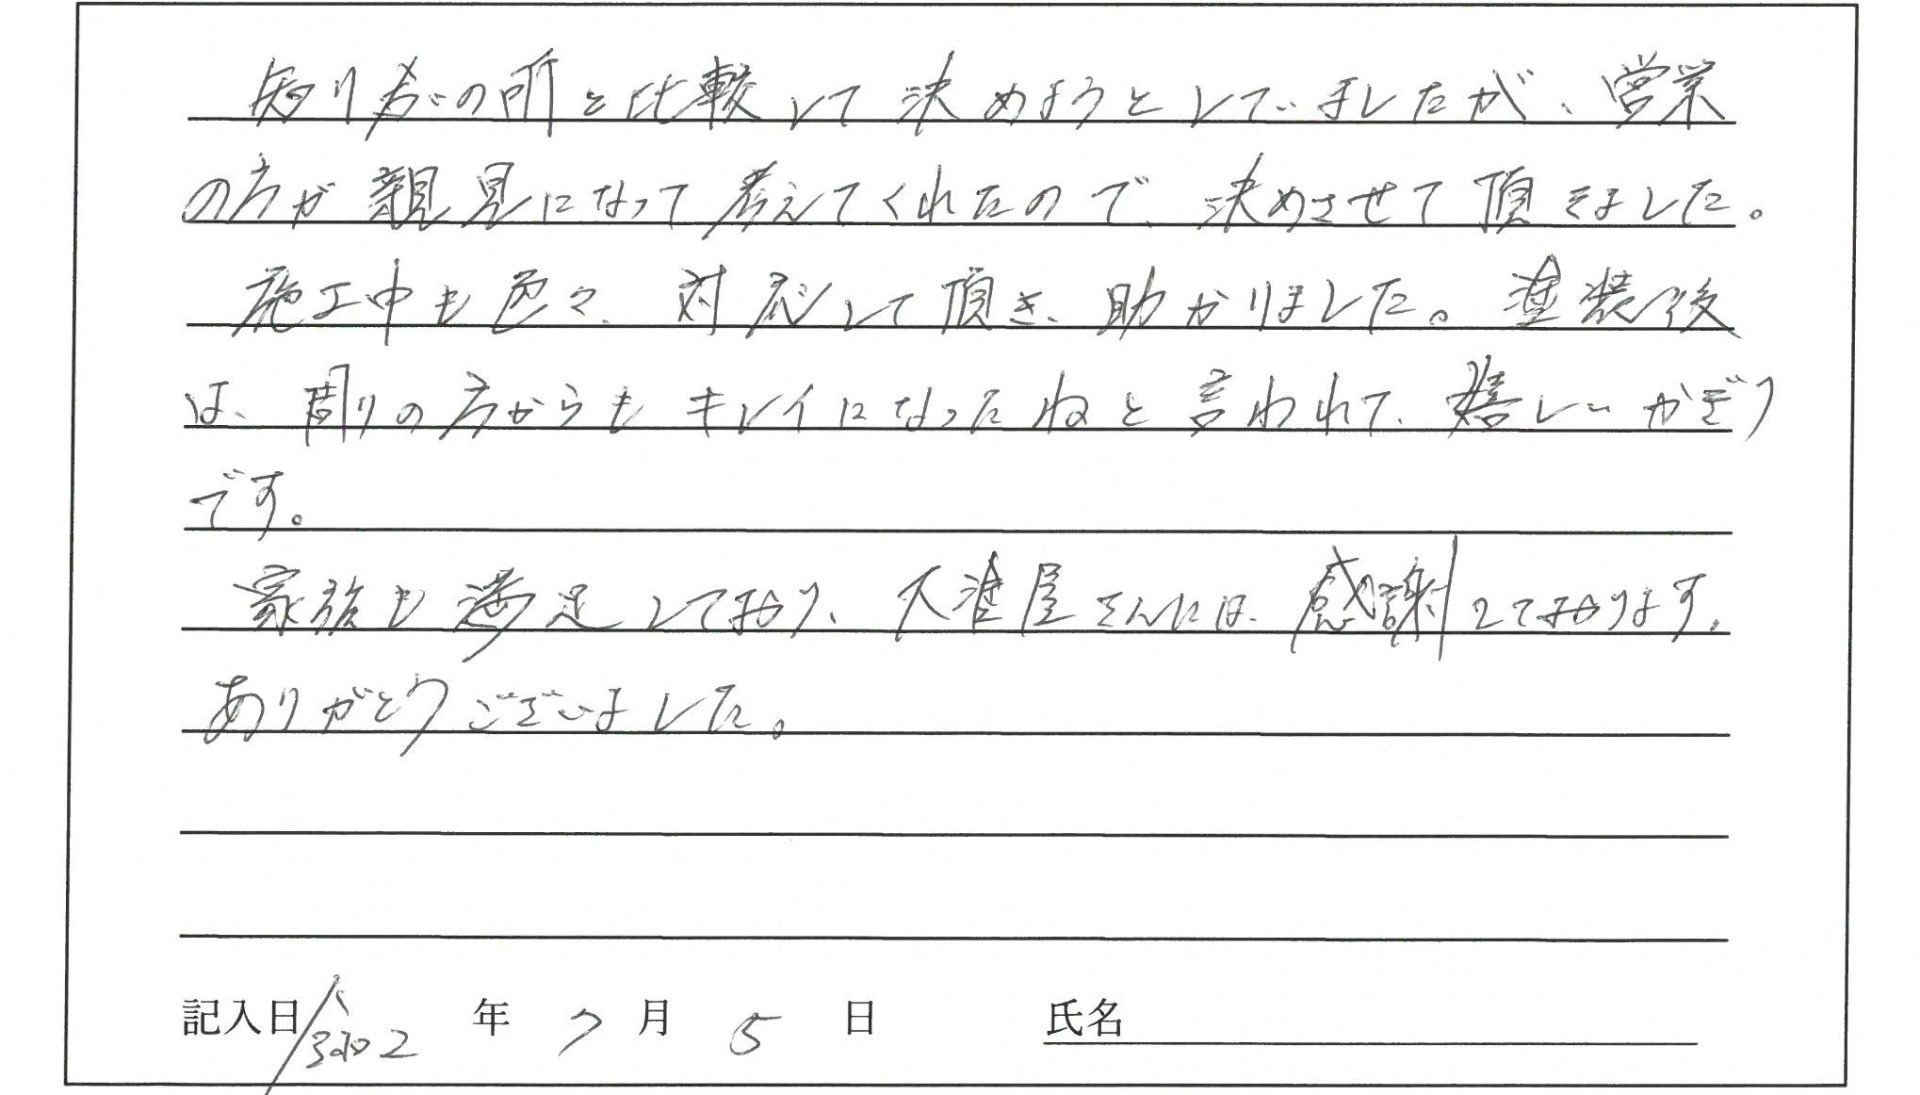 知り合いの所と比較して決めようとしていましたが、営業
の方が親見になって考えてくれたので、決めさせて頂きました。
施工中も色々、対応して頂き、助かりました。塗装後
は、周りの方からもキレイになったねと言われて、嬉しいかぎり
です。
家族も満足しており、大塗屋さんには、感謝しております。
ありがとうございました。
記入日 令和2年7月5日 氏名